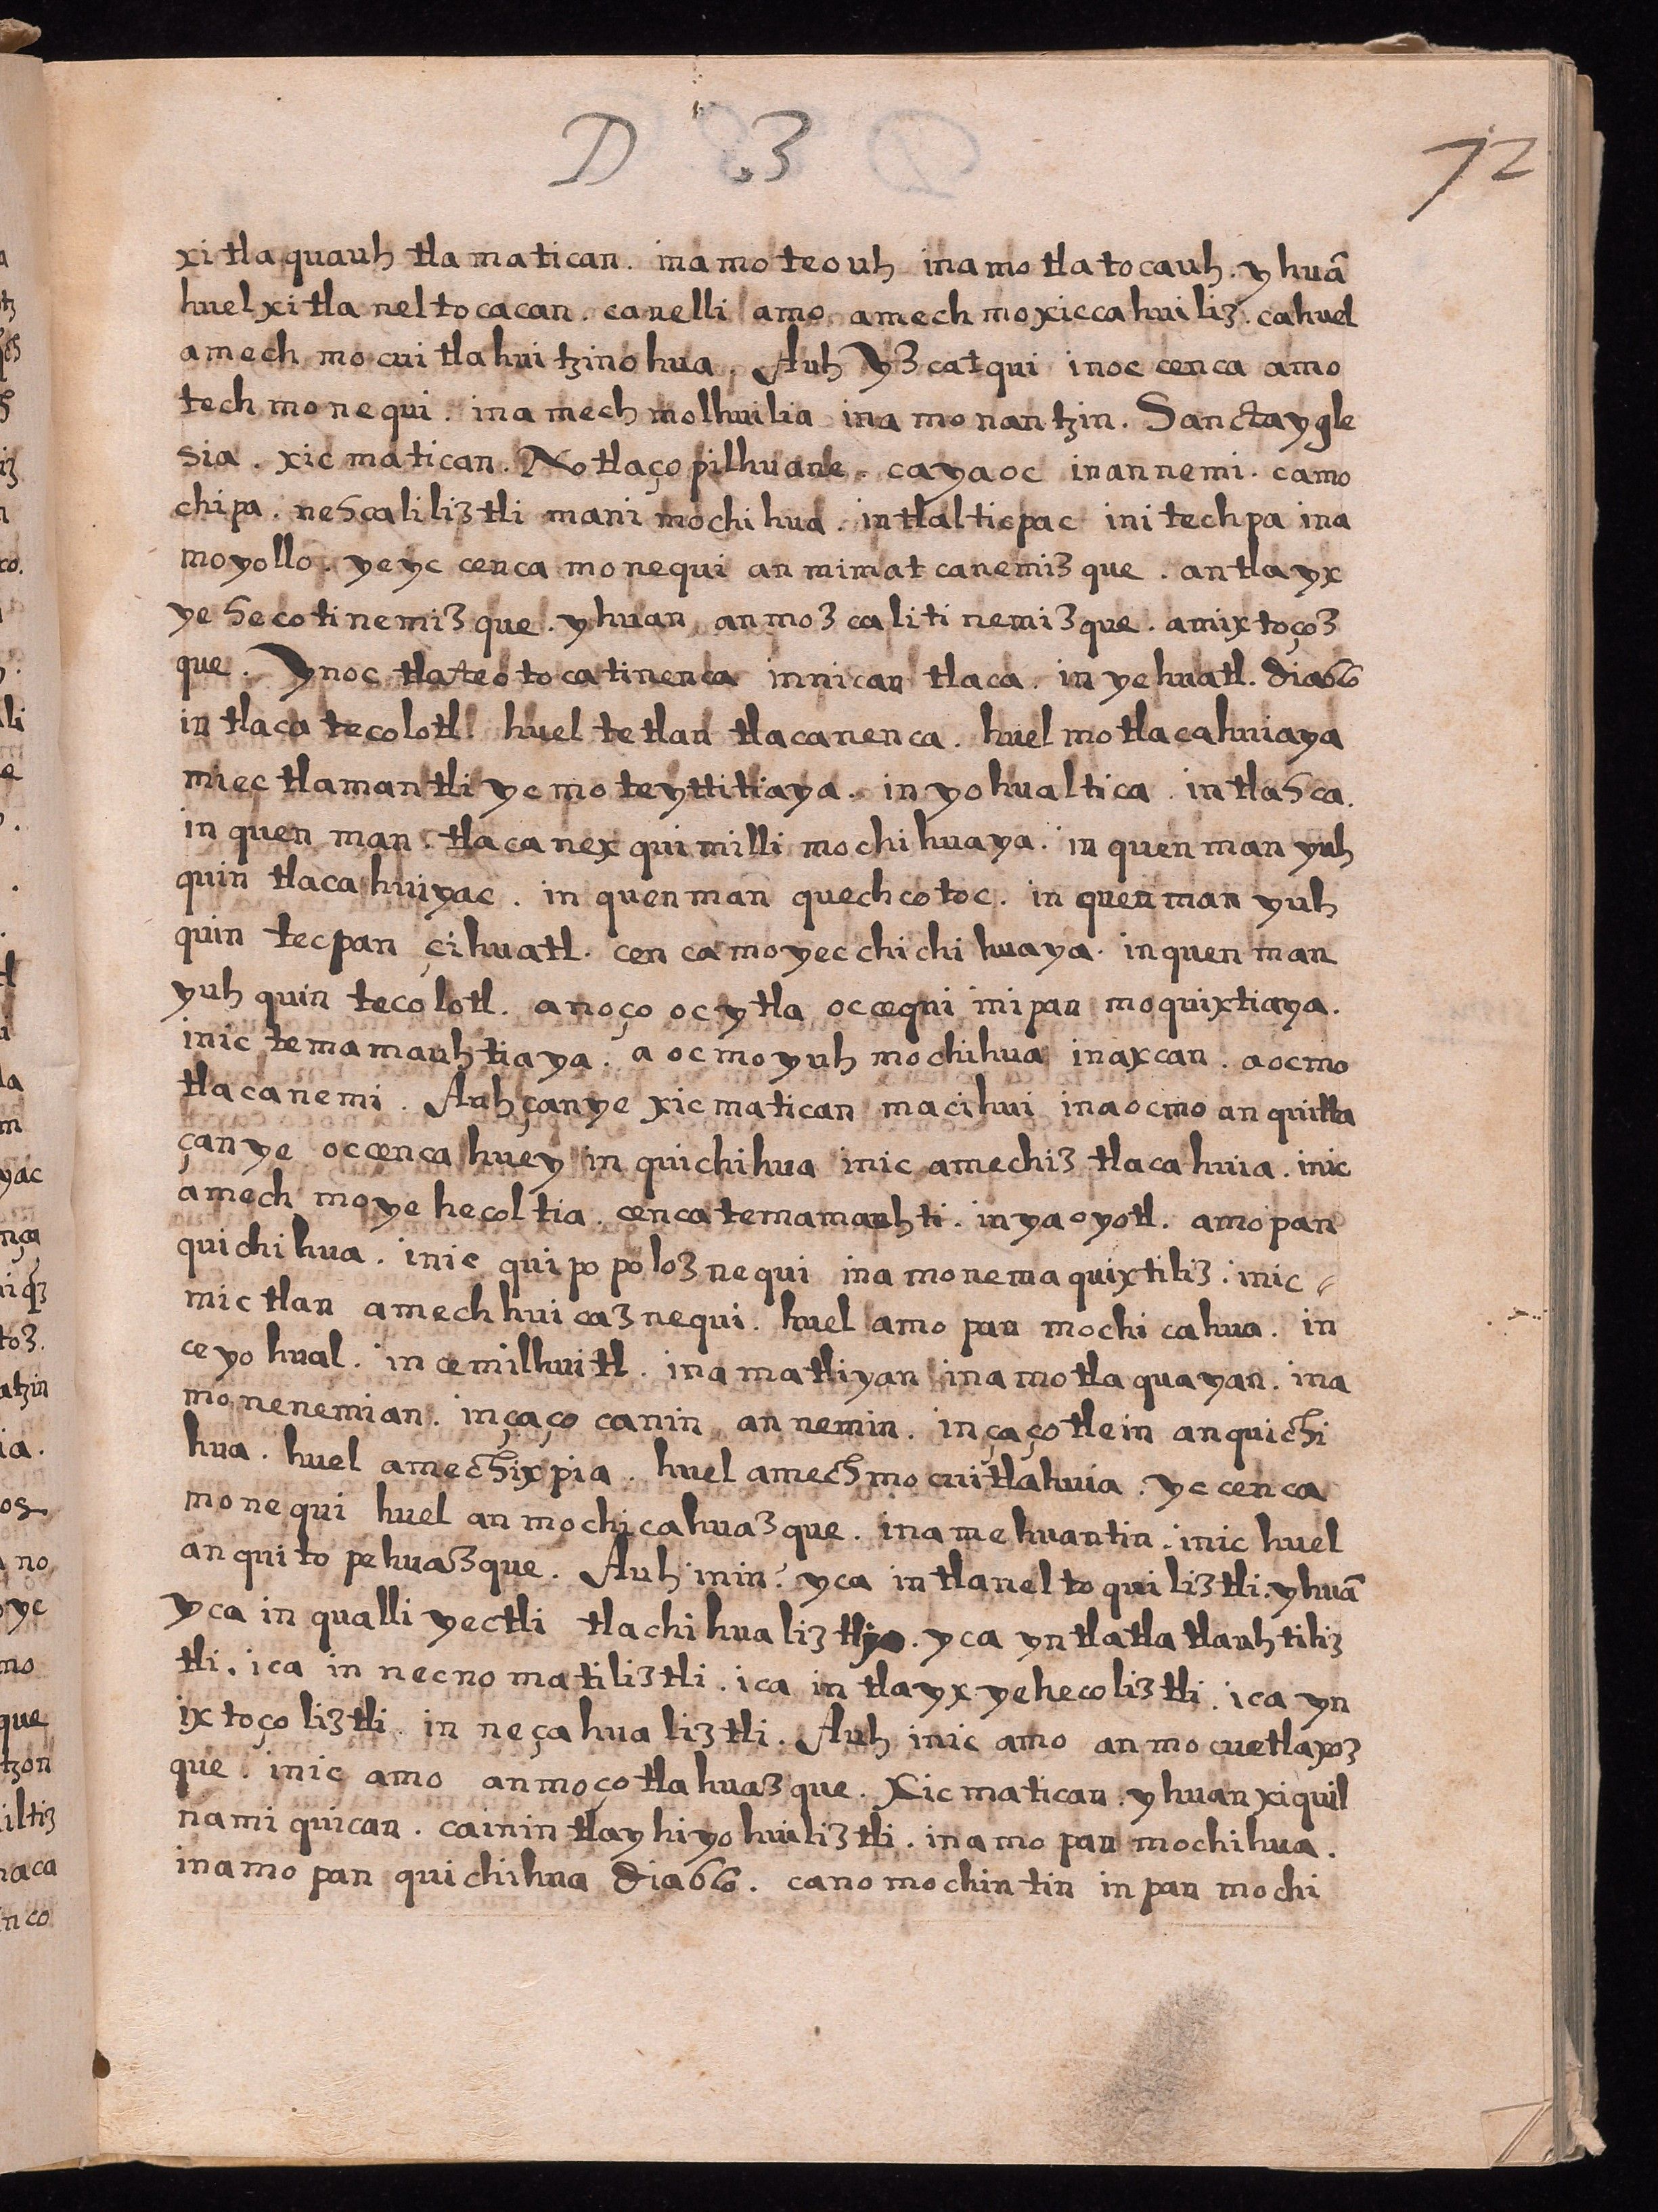 D .3
72
xi tla quauh tla matican. inamo teouh inamo tla tocauh. y huā
huel xi tla nel tocacan. canelli amo amech moxiccahuiliz. cahuel
amech mo cui tlahui tzino hua. Auh Yz catqui inoc cenca amo
tech mo nequi. ina mech molhuilia ina mo nantzin. Sancta ygle
sia. xic matican. No tlaço pilhuane. ca ya oc in an nemi. camo
chi pa. nehcaliliztli mani mochihua. in tlalticpac ini techpa ina
moyollo. ye yc cenca monequi an mimat canemiz que. an tla yx
ye hecoti nemiz que. y huan an moz caliti nemiz que. amix toçoz
que. Ynoc tla teo to catinenca in nican tlaca. in yehuatl. dia66
in tlaca tecolotl. huel te tlan tlacanenca. huel mo tlacahuiaya
miec tlamantli yc mo teyttitiaya. in yohualtica. in tlahca.
in quen man. tlaca nex quimilli mochi huaya. in quen man yuh
quin tlaca huiyac. in quen man quech cotoc. in quen man yuh
quin tecpan çihuatl. cen ca mo yec chi chi huaya. in quen man
yuh quin tecolotl. anoço oc ytla occequi inipan moquixtiaya.
inic te ma mauhtiaya. a oc mo yuh mochihua inaxcan. aocmo
tlaca nemi. Auh çan ye xic matican macihui ina ocmo an quitta
çan ye occenca huey in quichihua inic amechiz tlaca huia. inic
amech mo ye hecol tia. cenca temamauhti. in yaoyotl. amo pan
quichihua. inic qui po poloz nequi ina monemaquixtiliz. inic
mic tlan amech hui caz nequi. huel amo pan mochi cahua. in
ce yo hual. in cemilhuitl. ina matliyan ina mo tla quayan. ina
mo nenemian. in çaço canin an nemin. in çaço tlein anquichi
hua. huel amechix pia. huel amech mo cuitlahuia. yc cenca
mo nequi huel an mochi cahuaz que. ina me huantin. inic huel
an qui to pehuazque. Auh inin. yca in tlanel to qui liztli. yhuā
yca in qualli yectli tlachihualiz tli. yca yn tla tla tlauhtiliz
tli. ica in necno matiliztli. ica in tlayx yehecoliztli. ica yn
ix toço liztli. in neçahualiztli. Auh inic amo an mo cuetlaxoz
que. inic amo an mo ço tla huaz que. Xic matican. y huan xiquil
nami quican. cainin tlay hiyo huiliztli. inamo pan mochihua.
inamo pan quichihua dia66. cano mochin tin in pan mochi